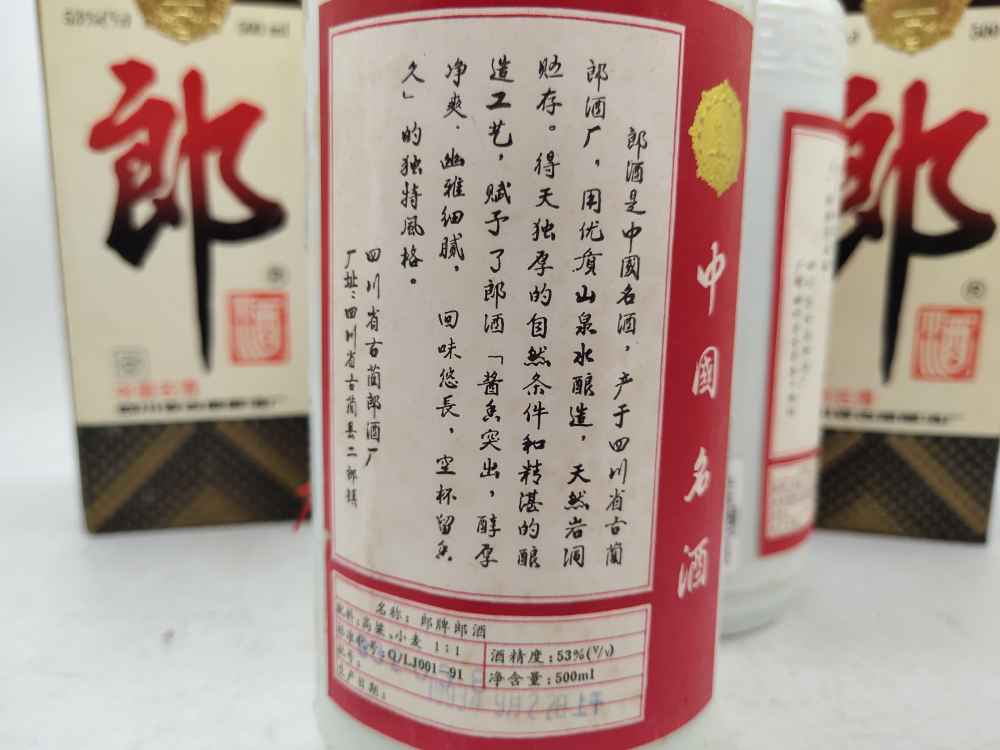 郎酒是中國名酒，产于四川省古蔺
郎酒厂，用优质山泉水酿造，天然岩洞
贮存。得天独厚的自然条件和精湛的酿
造工艺，赋予了郎酒「酱香突出，醇厚
净爽．幽雅细腻，回味悠長，空杯留香
久」的独特風格。
四川省古蔺郎酒厂
厂址：四川省古蔺县二郎镇
中國名酒
名称：郎牌郎酒
配料：高粱、小麦 1：1
标准代号：Q/LJ001-91
批号：
生产日期：
酒精度：53%(V/v)
净含量：500ml
郎
酒
500 ml
郎
酒